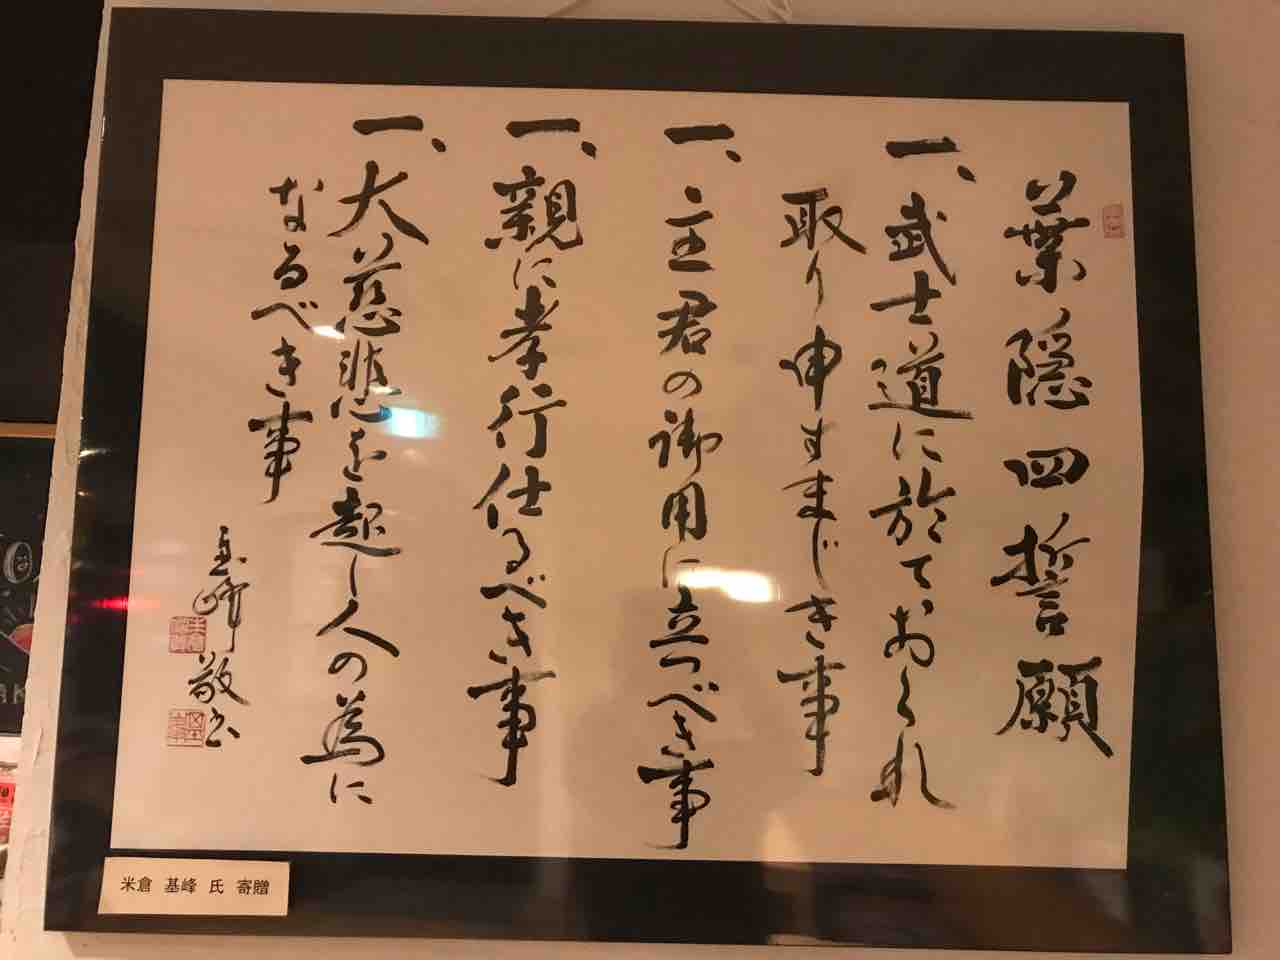 葉隠四誓願
一、武士道に於ておくれ
取り申すまじき事
一、主君の御用に立つべき事
一、親に孝行仕るべき事
一、大慈悲を起し人の為に
なるべき事
敬書
米倉 基峰 氏 寄贈